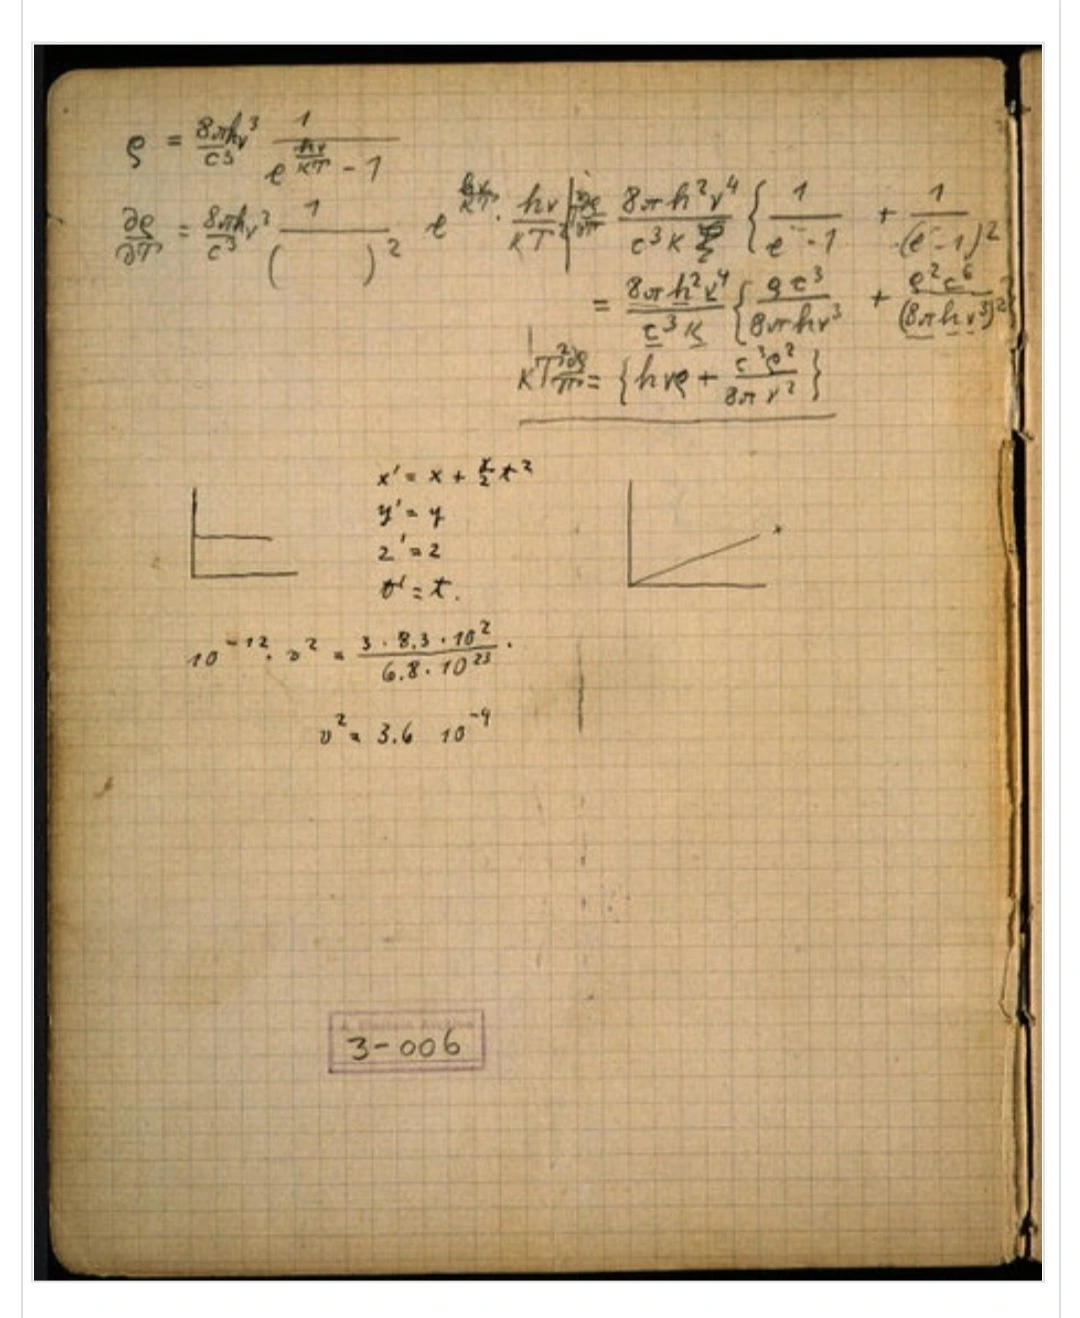 ρ = 8πhν³/c³ 1/(e^(hν/κT) - 1)
∂ρ/∂T = 8πhν³/c³ 1/( )² e^(hν/κT) · hν/κT² | ∂ρ/∂T 8πh²ν⁴/c³κ { 1/(e - 1) + 1/(e - 1)²
= 8πh²ν⁴/c³κ { ρc³/8πhν³ + ρ²c⁶/(8πhν³)² }
κT² ∂ρ/∂T = { hνρ + c³ρ²/8πν² }
x' = x + /2 t²
y' = y
z' = z
t' = t.
10⁻¹² · v² = 3 · 8.3 · 10²/6.8 · 10²³ .
v² = 3.6 10⁻⁹
3-006